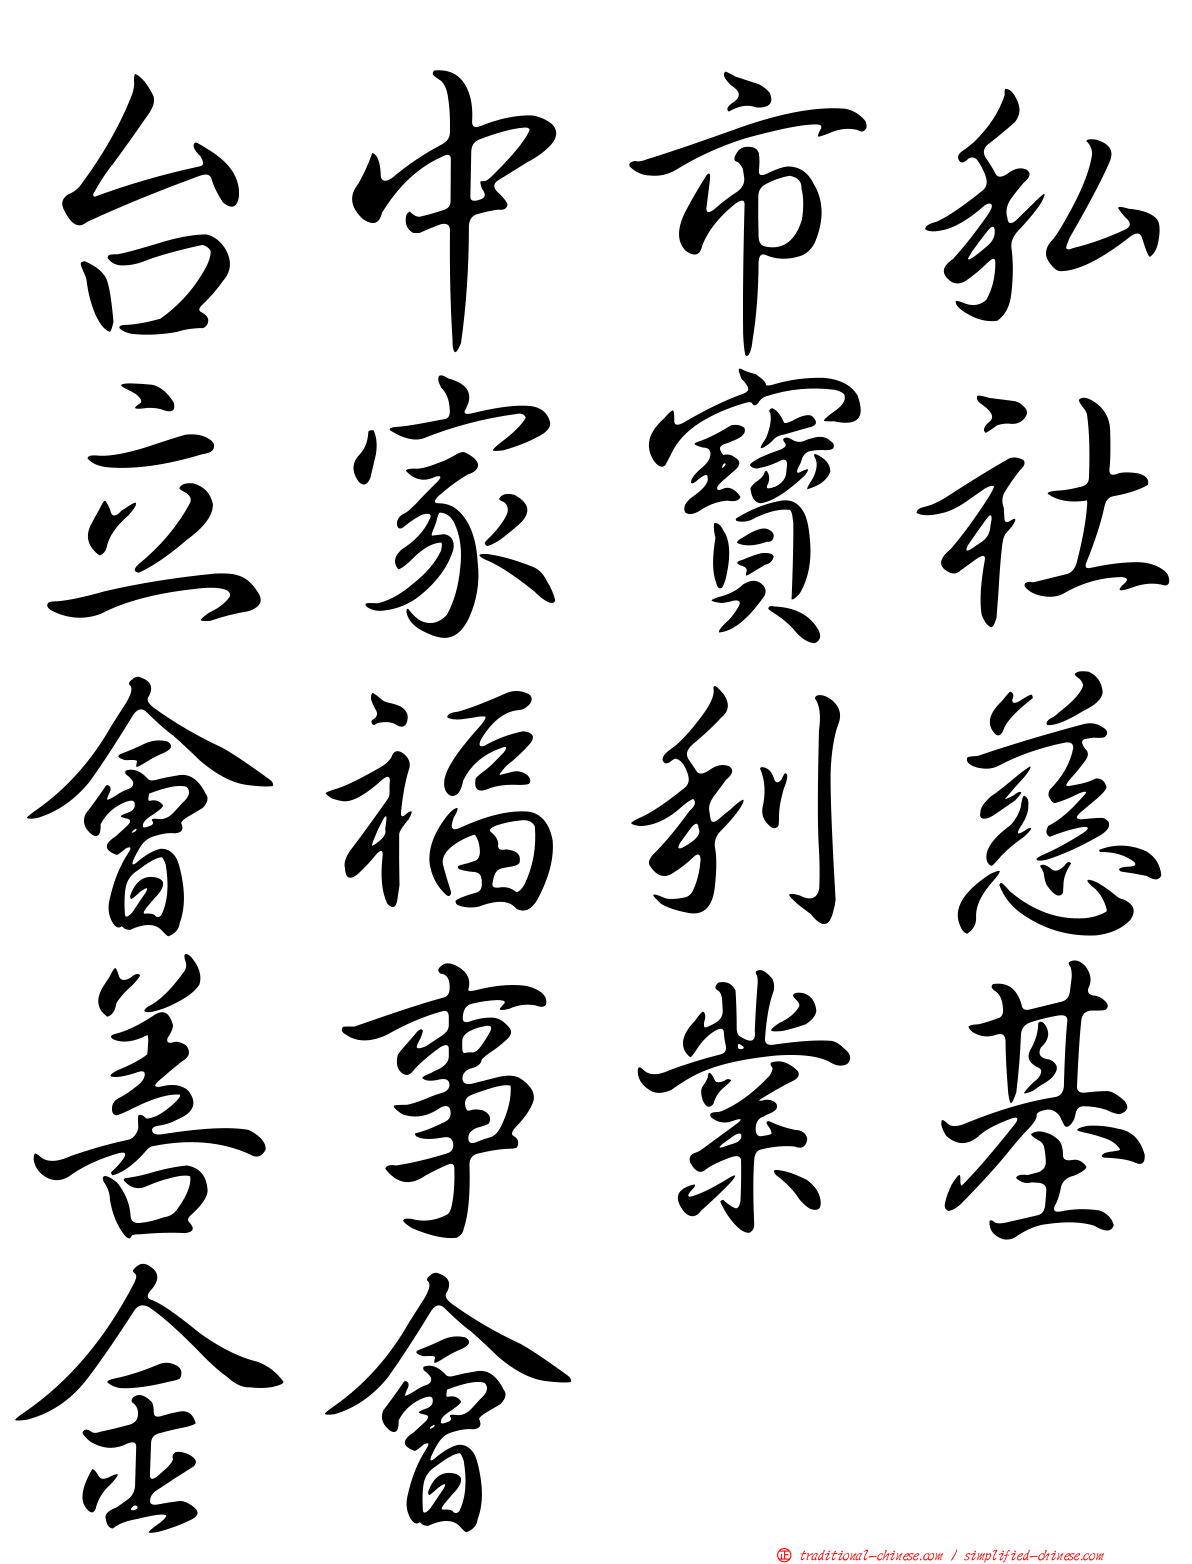 台中市私
立家寶社
會福利慈
善事業基
金會
正 traditional-chinese.com / simplified-chinese.com